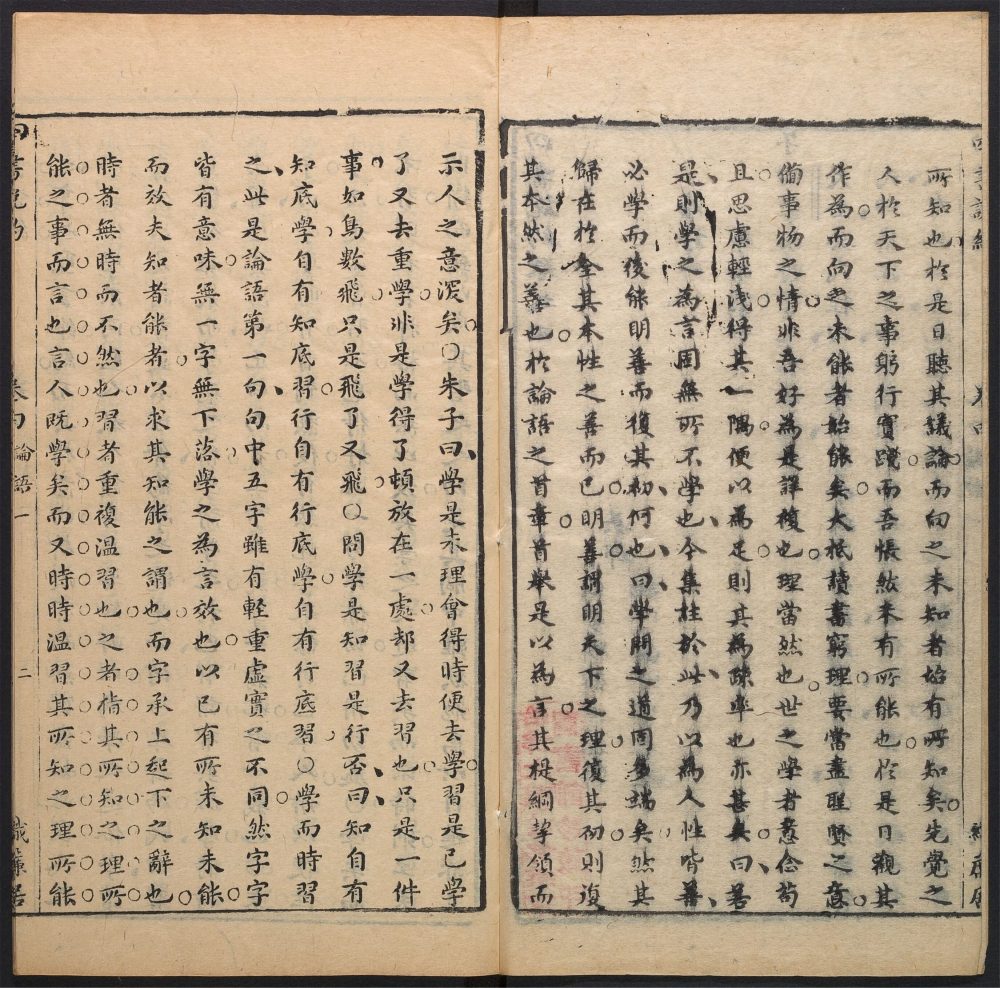 所知也於是日聽其議論而向之未知者始有所知矣先覺之
人於天下之事躬行實踐而吾悵然未有所能也於是日觀其
作為而向之未能者始能矣大抵讀書窮理要當盡聖賢之意
備事物之情非吾好為是詳復也理當然也世之學者意念苟
且思慮輕淺得其一隅便以為足則其為疎率也亦甚矣曰善
是則學之為言固無所不學也今集註於此乃以為人性皆善
必學而後能明善而復其初何也曰學問之道固多端矣然其
歸在於全其本性之善而已明善謂明天下之理復其初則復
其本然之善也於論語之首章首舉是以為言其提綱挈領而
示人之意深矣○朱子曰學是未理會得時便去學習是已學
了又去重學非是學得了頓放在一處却又去習也只是一件
事如鳥數飛只是飛了又飛○問學是知習是行否曰知自有
知底學自有知底習行自有行底學自有行底習○學而時習
之此是論語第一句句中五字雖有輕重虛實之不同然字字
皆有意味無一字無下落學之為言效也以己有所未知未能
而效夫知者能者以求其知能之謂也而字承上起下之辭也
時者無時而不然也習者重複溫習也之者指其所知之理所
能之事而言也言人既學矣而又時時温習其所知之理所能
四書說約 卷內論語一 二 織簾居